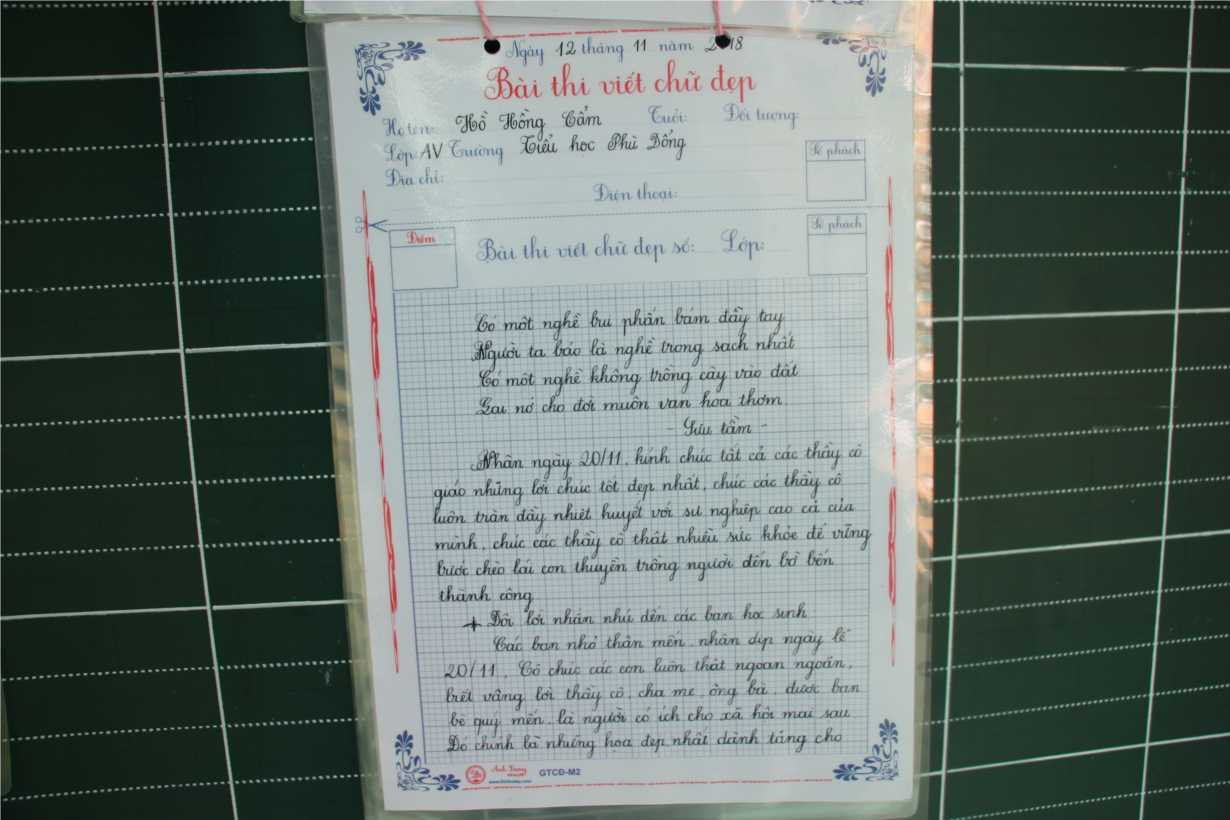 Ngày 12 tháng 11 năm 2018
Bài thi viết chữ đẹp
Họ tên: Hồ Hồng Cẩm Tuổi: Đối tượng:
Lớp: AV Trường Tiểu học Phù Đổng
Địa chỉ:
Điện thoại:
Số phách
Điểm
Bài thi viết chữ đẹp số: Lớp:
Số phách
Có một nghề bụi phấn bám đầy tay
Người ta bảo là nghề trong sạch nhất
Có một nghề không trồng cây vào đất
Lại nở cho đời muôn vạn hoa thơm
- Sưu tầm -
Nhân ngày 20/11, kính chúc tất cả các thầy cô
giáo những lời chúc tốt đẹp nhất, chúc các thầy cô
luôn tràn đầy nhiệt huyết với sự nghiệp cao cả của
mình, chúc các thầy cô thật nhiều sức khỏe để vững
bước chèo lái con thuyền trồng người đến bờ bến
thành công
+ Đôi lời nhắn nhủ đến các bạn học sinh
Các bạn nhỏ thân mến, nhân dịp ngày lễ
20/11, Cô chúc các con luôn thật ngoan ngoãn,
biết vâng lời thầy cô, cha mẹ, ông bà, được bạn
bè quý mến, là người có ích cho xã hội mai sau
Đó chính là những hoa đẹp nhất dành tặng cho
Anh Dương
GTCĐ-M2